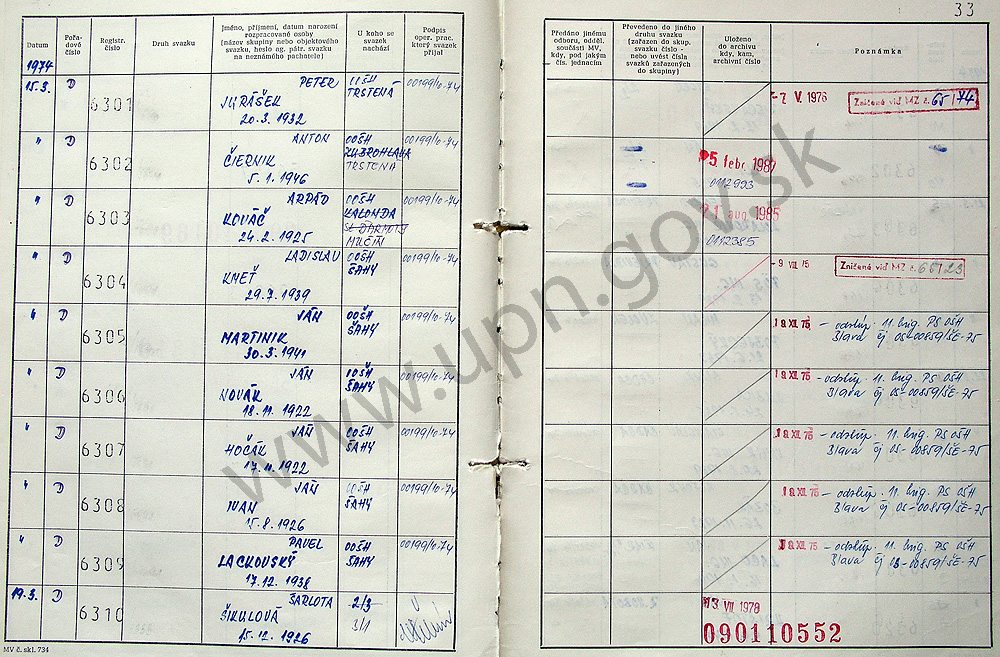 33
Datum
Pořadové číslo
Registr. číslo
Druh svazku
Jméno, příjmení, datum narození
rozpracované osoby
(název skupiny nebo objektového
svazku, heslo ag. pátr. svazku
na neznámého pachatele)
U koho se svazek nachází
Podpis
oper. prac.
který svazek
přijal
Předáno jinému
odboru, odděl.
součásti MV,
kdy, pod jakým
čís. jednacím
Převedeno do jiného
druhu svazku
(zařazen do skup.
svazku číslo -
nebo uvést čísla
svazků zařazených
do skupiny)
Uloženo
do archivu
kdy, kam,
archivní číslo
Poznámka
1974
15.3. D 6301 PETER OOŠH 00199/10-74
JURÁŠEK TRSTENÁ
20.3.1932
- 7 V. 1976 Zničené viď MZ č. 65/74
" D 6302 ANTON OOŠH 00199/10-74
ČIERNIK ZUBROHLAVA
5.1.1946 TRSTENÁ
5 febr. 1987
0112993
" D 6303 ARPÁD OOŠH 00199/10-74
KOVÁČ KALONDA
24.2.1925 SL. ĎARMOTY
MUČÍN
21 aug 1985
0112385
" D 6304 LADISLAV OOŠH 00199/10-74
KMEŤ ŠAHY
29.7.1939
- 9 VII 75 Zničené viď MZ č.
" D 6305 JÁN OOŠH 00199/10-74
MARTINIK ŠAHY
30.3.1941
18 XII. 75 - odstúp. 11. bríg. PS OŠH
Blava čj 05-00859/ŠE-75
" D 6306 JÁN OOŠH 00199/10-74
NOVÁK ŠAHY
18.11.1922
18 XII. 75 - odstúp. 11. bríg. PS OŠH
Blava čj 05-00859/ŠE-75
" D 6307 JÁN OOŠH 00199/10-74
HÔČÁK ŠAHY
17.11.1922
18 XII. 75 - odstúp. 11. bríg. PS OŠH
Blava čj 05-00859/ŠE-75
" D 6308 JÁN OOŠH 00199/10-74
IVAN ŠAHY
15.8.1926
18 XII. 75 - odstúp. 11. bríg. PS OŠH
Blava čj 05-00859/ŠE-75
" D 6309 PAVEL OOŠH 00199/10-74
LACKOVSKÝ ŠAHY
17.12.1938
18 XII. 75 - odstúp. 11. bríg. PS OŠH
Blava čj 05-00859/ŠE-75
19.3. D 6310 ŠARLOTA 2/3
ŠIKULOVÁ 3/1
15.12.1926
13 VII. 1978
090110552
MV č. skl. 734
www.upn.gov.sk